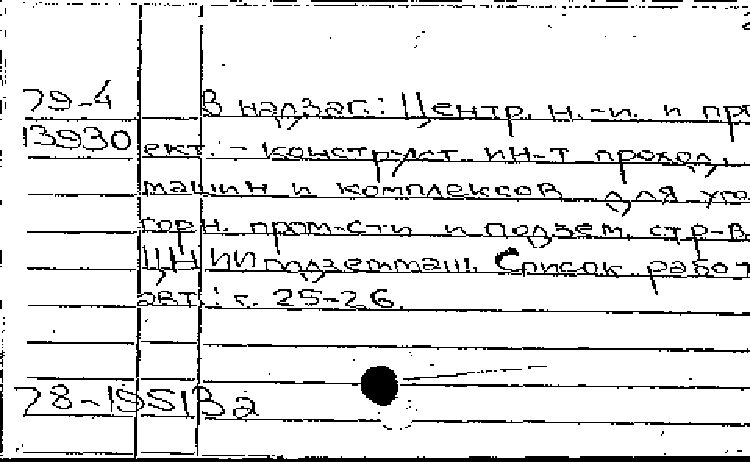 79-4 В надзаг.: Центр. н.-и. и про
13930 ект.-конструкт. ин-т проход.
машин и комплексов для уго
горн. пром-сти и подзем. стр-в
ЦНИИподземмаш. Список работ
авт.: с. 25-26.
78-19513а